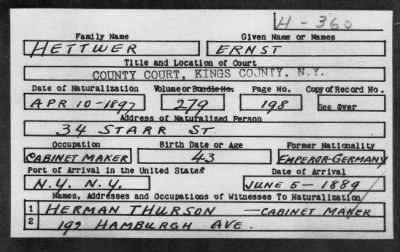 H-360
Family Name Given Name or Names
HETTWER ERNST
Title and Location of Court
COUNTY COURT, KINGS COUNTY, N.Y.
Date of Naturalization Volume or Bundle No. Page No. Copy of Record No.
APR 10-1897 279 198 See Over
Address of Naturalized Person
34 STARR ST.
Occupation Birth Date or Age Former Nationality
CABINET MAKER 43 EMPEROR-GERMANY
Port of Arrival in the United States Date of Arrival
N.Y. N.Y. JUNE 5-1889
Names, Addresses and Occupations of Witnesses To Naturalization
1 HERMAN THURSON — CABINET MAKER
2 192 HAMBURGH AVE.